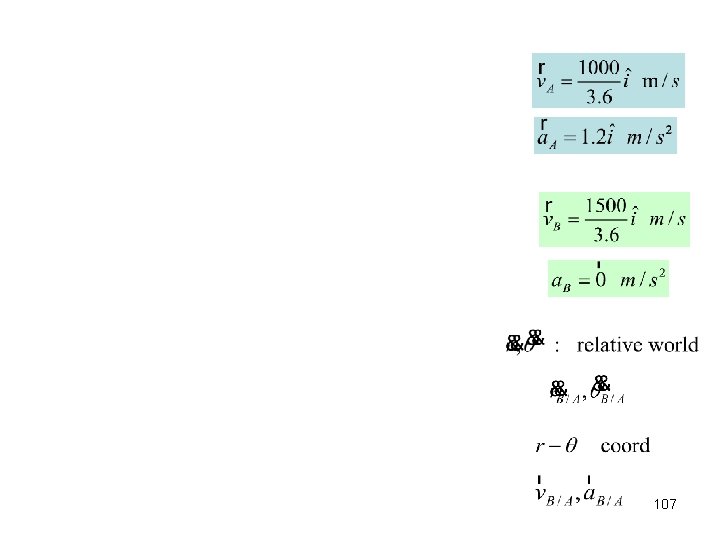 r
v_A = 1000/3.6 î m/s
r
a_A = 1.2î m/s²
r
v_B = 1500/3.6 î m/s
a_B = 0 m/s²
&&, θ&& : relative world
&&_B/A , θ&&_B/A
r − θ coord
v_B/A , a_B/A
107